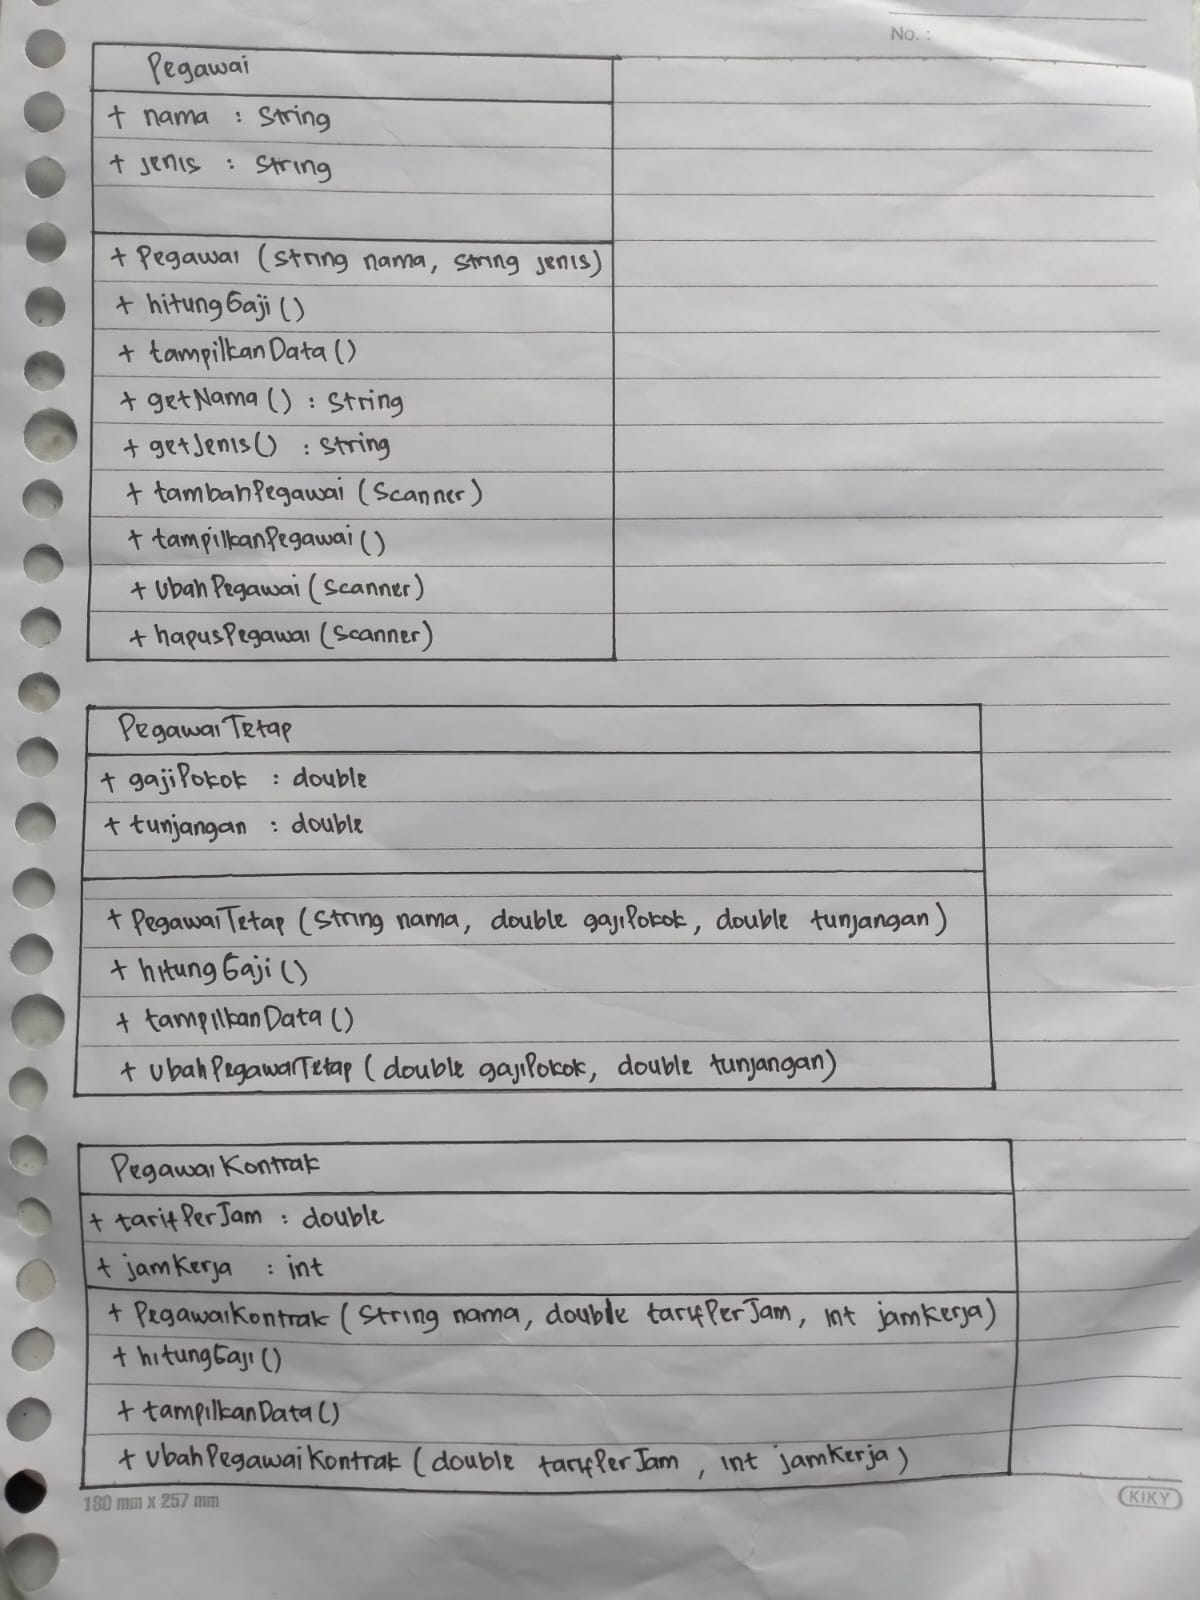 No. :
Pegawai
+ nama : String
+ jenis : String
+ Pegawai (String nama, String jenis)
+ hitungGaji ()
+ tampilkanData ()
+ getNama () : String
+ getJenis () : String
+ tambahPegawai (Scanner)
+ tampilkanPegawai ()
+ UbahPegawai (Scanner)
+ hapusPegawai (Scanner)
PegawaiTetap
+ gajiPokok : double
+ tunjangan : double
+ PegawaiTetap (String nama, double gajiPokok, double tunjangan)
+ hitungGaji ()
+ tampilkanData ()
+ UbahPegawaiTetap (double gajiPokok, double tunjangan)
PegawaiKontrak
+ tarifPerJam : double
+ jamKerja : int
+ PegawaiKontrak (String nama, double tarifPerJam, int jamKerja)
+ hitungGaji ()
+ tampilkanData ()
+ UbahPegawaiKontrak (double tarifPerJam, int jamKerja)
180 mm x 257 mm
KIKY